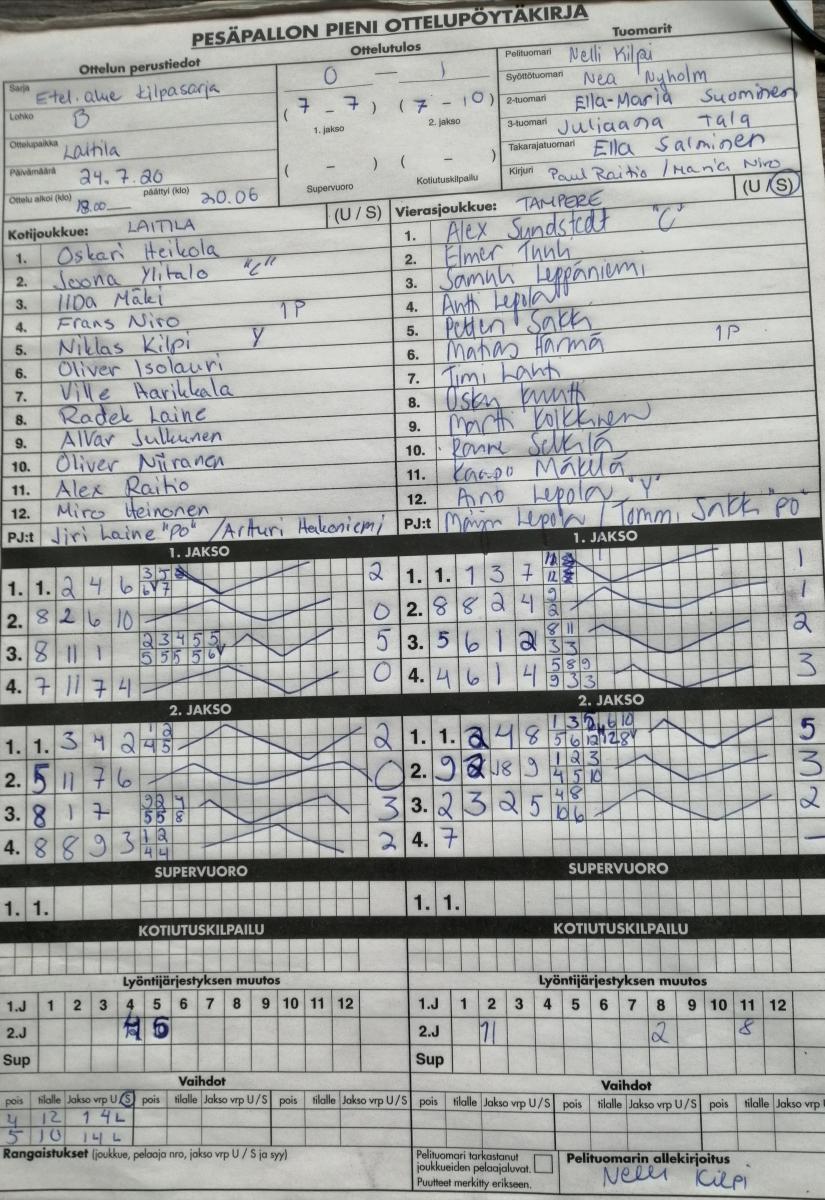 PESÄPALLON PIENI OTTELUPÖYTÄKIRJA
Ottelun perustiedot
Sarja Etel. alue kilpasarja
Lohko B
Ottelupaikka Laitila
Päivämäärä 24.7.20
Ottelu alkoi (klo) 18.00 päättyi (klo) 20.06
Ottelutulos
0 — 1
(7 - 7) (7 - 10)
1. jakso 2. jakso
( - ) ( - )
Supervuoro Kotiutuskilpailu
Tuomarit
Pelituomari Nelli Kilpi
Syöttötuomari Nea Nyholm
2-tuomari Ella-Maria Suominen
3-tuomari Juliaana Tala
Takarajatuomari Ella Salminen
Kirjuri Paul Raitio / Maria Niro
Kotijoukkue: LAITILA (U / S)
1. Oskari Heikola
2. Joona Ylitalo "C"
3. IIDa Mäki
4. Frans Niro 1P
5. Niklas Kilpi Y
6. Oliver Isolauri
7. Ville Aarikkala
8. Radek Laine
9. Alvar Julkunen
10. Oliver Niiranen
11. Alex Raitio
12. Miro Heinonen
PJ:t Jiri Laine "PO" / Artturi Hakoniemi
Vierasjoukkue: TAMPERE (U / S)
1. Alex Sundstedt "C"
2. Elmer
3. Leppäniemi
4. Antti Lepola
5. Petteri Sakki
6. Matias Harmä 1P
7. Timi Lahti
8.
9. Martti Koikkinen
10.
11. Mäkelä
12. Aino Lepola "Y"
PJ:t Lepola / Tommi Sakki "PO"
1. JAKSO
1. 1. 2 4 6 2
2. 8 2 6 10 0
3. 8 11 1 2 3 4 5 5 5
5 5 5 5 6
4. 7 11 7 4 0
2. JAKSO
1. 1. 3 4 2 1 2 2
4 5
2. 5 11 7 6 0
3. 8 1 7 3
5 5 8
4. 8 8 9 3 1 2 2
4 4
SUPERVUORO
1. 1.
KOTIUTUSKILPAILU
1. JAKSO
1. 1. 1 3 7 1
2. 8 8 2 4 9 1
2
3. 5 6 1 2 8 11 2
3 3
4. 4 6 1 4 5 8 9 3
9 3 3
2. JAKSO
1. 1. 2 4 8 5
2. 9 2 18 9 1 2 3 3
4 5 10
3. 2 3 2 5 4 8 2
10 6
4. 7 —
SUPERVUORO
1. 1.
KOTIUTUSKILPAILU
Lyöntijärjestyksen muutos
1.J 1 2 3 4 5 6 7 8 9 10 11 12
2.J
Sup
Lyöntijärjestyksen muutos
1.J 1 2 3 4 5 6 7 8 9 10 11 12
2.J 11 2 8
Sup
Vaihdot
pois tilalle Jakso vrp U / S pois tilalle Jakso vrp U / S pois tilalle Jakso vrp U / S
4 12 1 4 L
5 10 1 4 L
Vaihdot
pois tilalle Jakso vrp U / S pois tilalle Jakso vrp U / S pois tilalle Jakso vrp U
Rangaistukset (joukkue, pelaaja nro, jakso vrp U / S ja syy)
Pelituomari tarkastanut
joukkueiden pelaajaluvat.
Puutteet merkitty erikseen.
Pelituomarin allekirjoitus
Nelli Kilpi